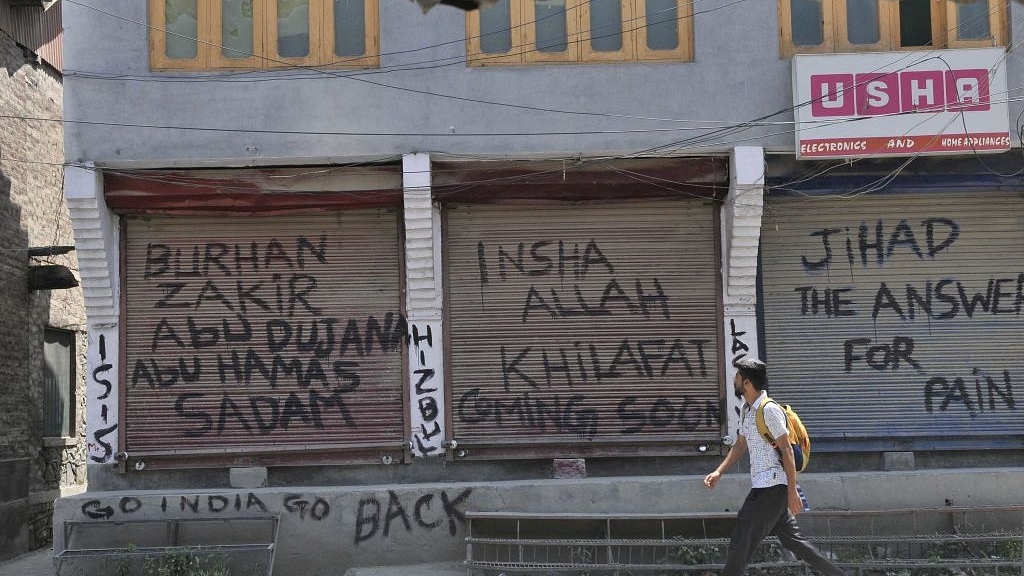 USHA
ELECTRONICS AND HOME APPLIANCES
ISIS
BURHAN
ZAKIR
ABU DUJANAH
ABU HAMAS
SADAM
HIZBUL
INSHA
ALLAH
KHILAFAT
COMING SOON
JIHAD
THE ANSWER
FOR
PAIN
GO INDIA GO BACK